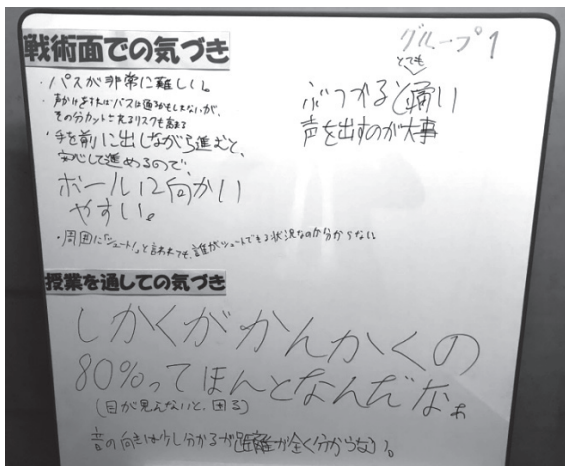 戦術面での気づき
グループ1
・パスが非常に難しい。
・声かけをすればパスは通るかもしれないが、
その分カットされるリスクも高まる
・手を前に出しながら進むと、
安心して進めるので、
ボールに向かい
やすい。
・周囲に「シュート!」と言われても、誰がシュートできる状況なのか分からない
とても
ぶつかると痛い
声を出すのが大事
授業を通しての気づき
しかくがかんかくの
80%ってほんとなんだなぁ
(目が見えないと、困る)
音の向きは少し分かるが距離が全く分からない。